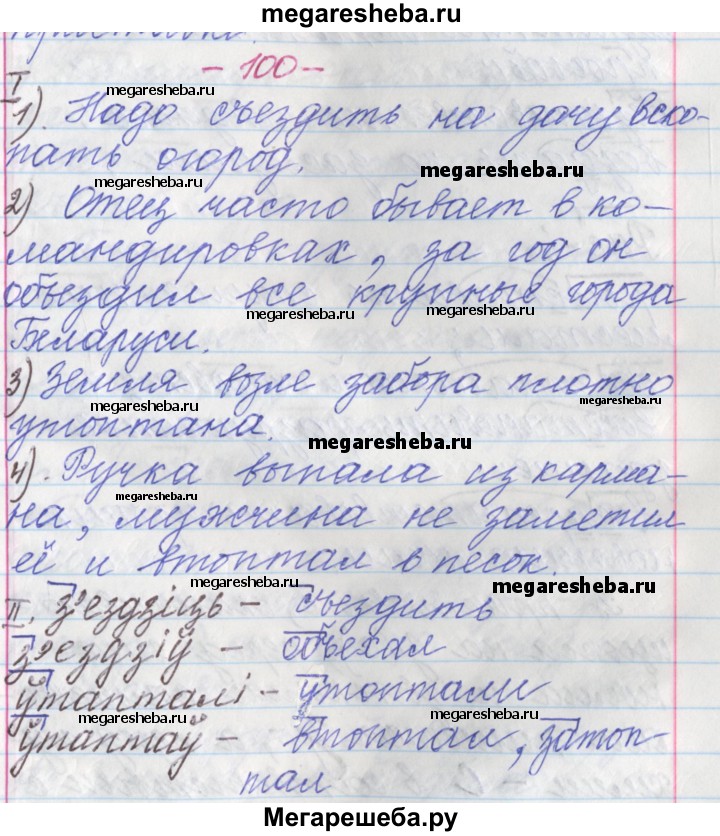 megaresheba.ru
- 100 -
I
1). Надо съездить на дачу вско-
megaresheba.ru
пать огород.
megaresheba.ru
megaresheba.ru
2) Отец часто бывает в ко-
мандировках, за год он
megaresheba.ru
объездил все крупные города
megaresheba.ru
megaresheba.ru
Беларуси.
3) Земля возле забора плотно
megaresheba.ru
megaresheba.ru
утоптана.
megaresheba.ru
4). Ручка выпала из карма-
megaresheba.ru
на, мужчина не заметил
её и втоптал в песок.
megaresheba.ru
megaresheba.ru
II. з'ездзіць - съездить
з'ездзіў - объехал
ўтапталі - утоптали
megaresheba.ru
megaresheba.ru
ўтаптаў - втоптал, затоп-
тал
Мегарешеба.ру